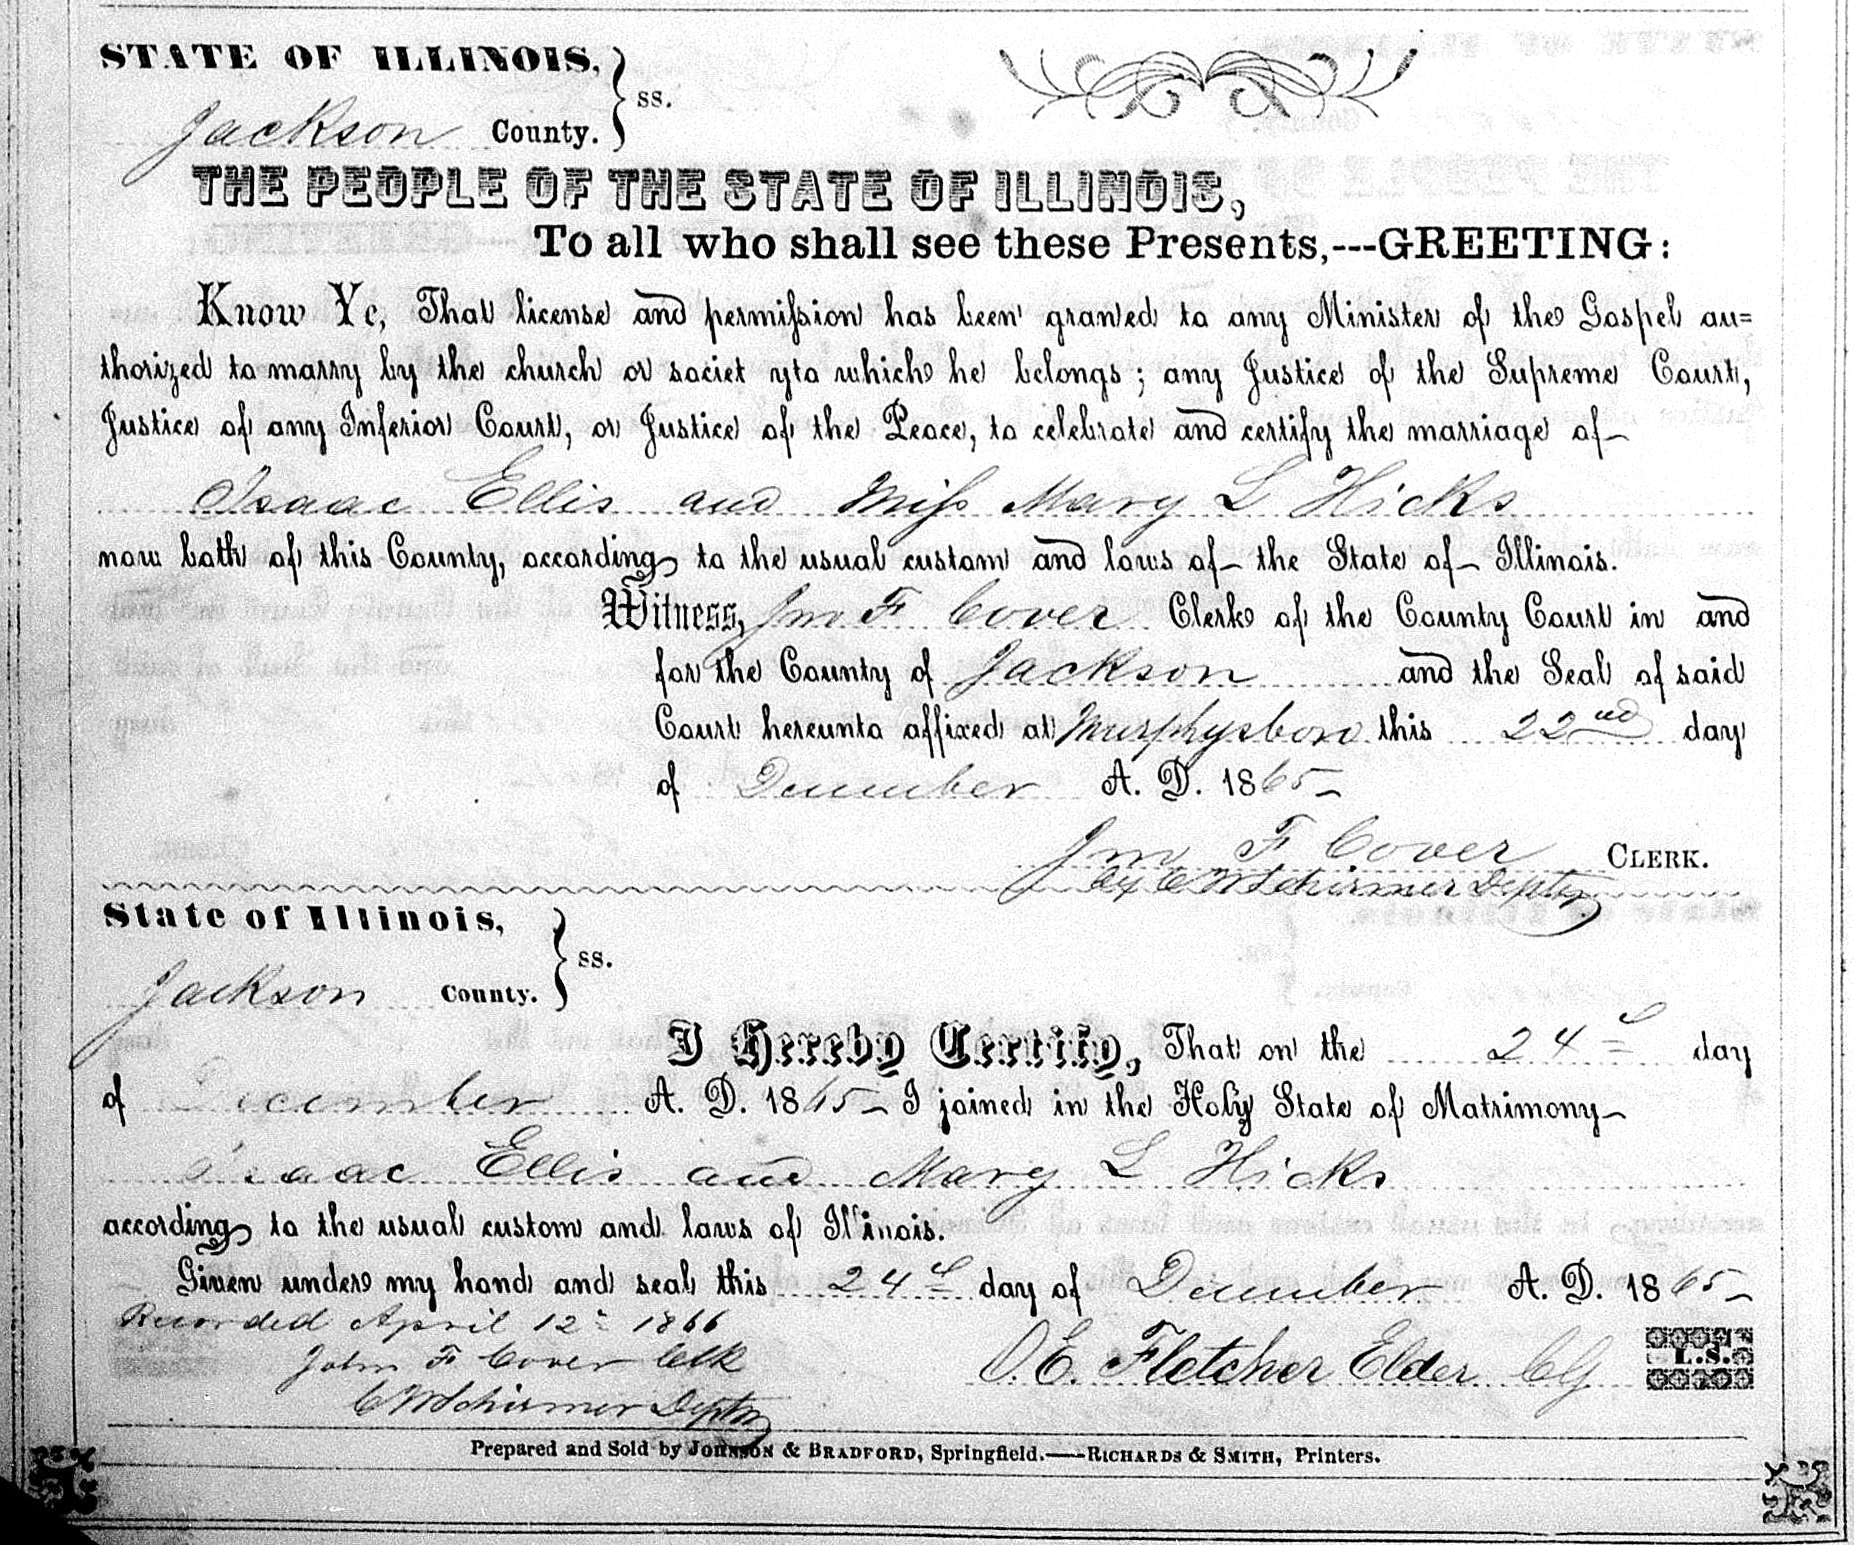 STATE OF ILLINOIS,
Jackson County. } ss.
THE PEOPLE OF THE STATE OF ILLINOIS,
To all who shall see these Presents,---GREETING:
Know Ye, That license and permission has been granted to any Minister of the Gospel au=
thorized to marry by the church or societ yto which he belongs; any Justice of the Supreme Court,
Justice of any Inferior Court, or Justice of the Peace, to celebrate and certify the marriage of
Isaac Ellis and Miss Mary L Hicks
now both of this County, according to the usual custom and laws of the State of Illinois.
Witness, Jno F Cover Clerk of the County Court in and
for the County of Jackson and the Seal of said
Court hereunto affixed at Murphysboro this 22nd day
of December A. D. 1865
Jno F Cover CLERK.
By C W Schirmer Depty
State of Illinois,
Jackson County. } ss.
I Hereby Certify, That on the 24th day
of December A. D. 1865 I joined in the Holy State of Matrimony
Isaac Ellis and Mary L Hicks
according to the usual custom and laws of Illinois.
Given under my hand and seal this 24th day of December A. D. 1865
Recorded April 12th 1866
John F Cover Clk
O. E. Fletcher Elder CG L.S.
C W Schirmer Depty
Prepared and Sold by JOHNSON & BRADFORD, Springfield.——RICHARDS & SMITH, Printers.